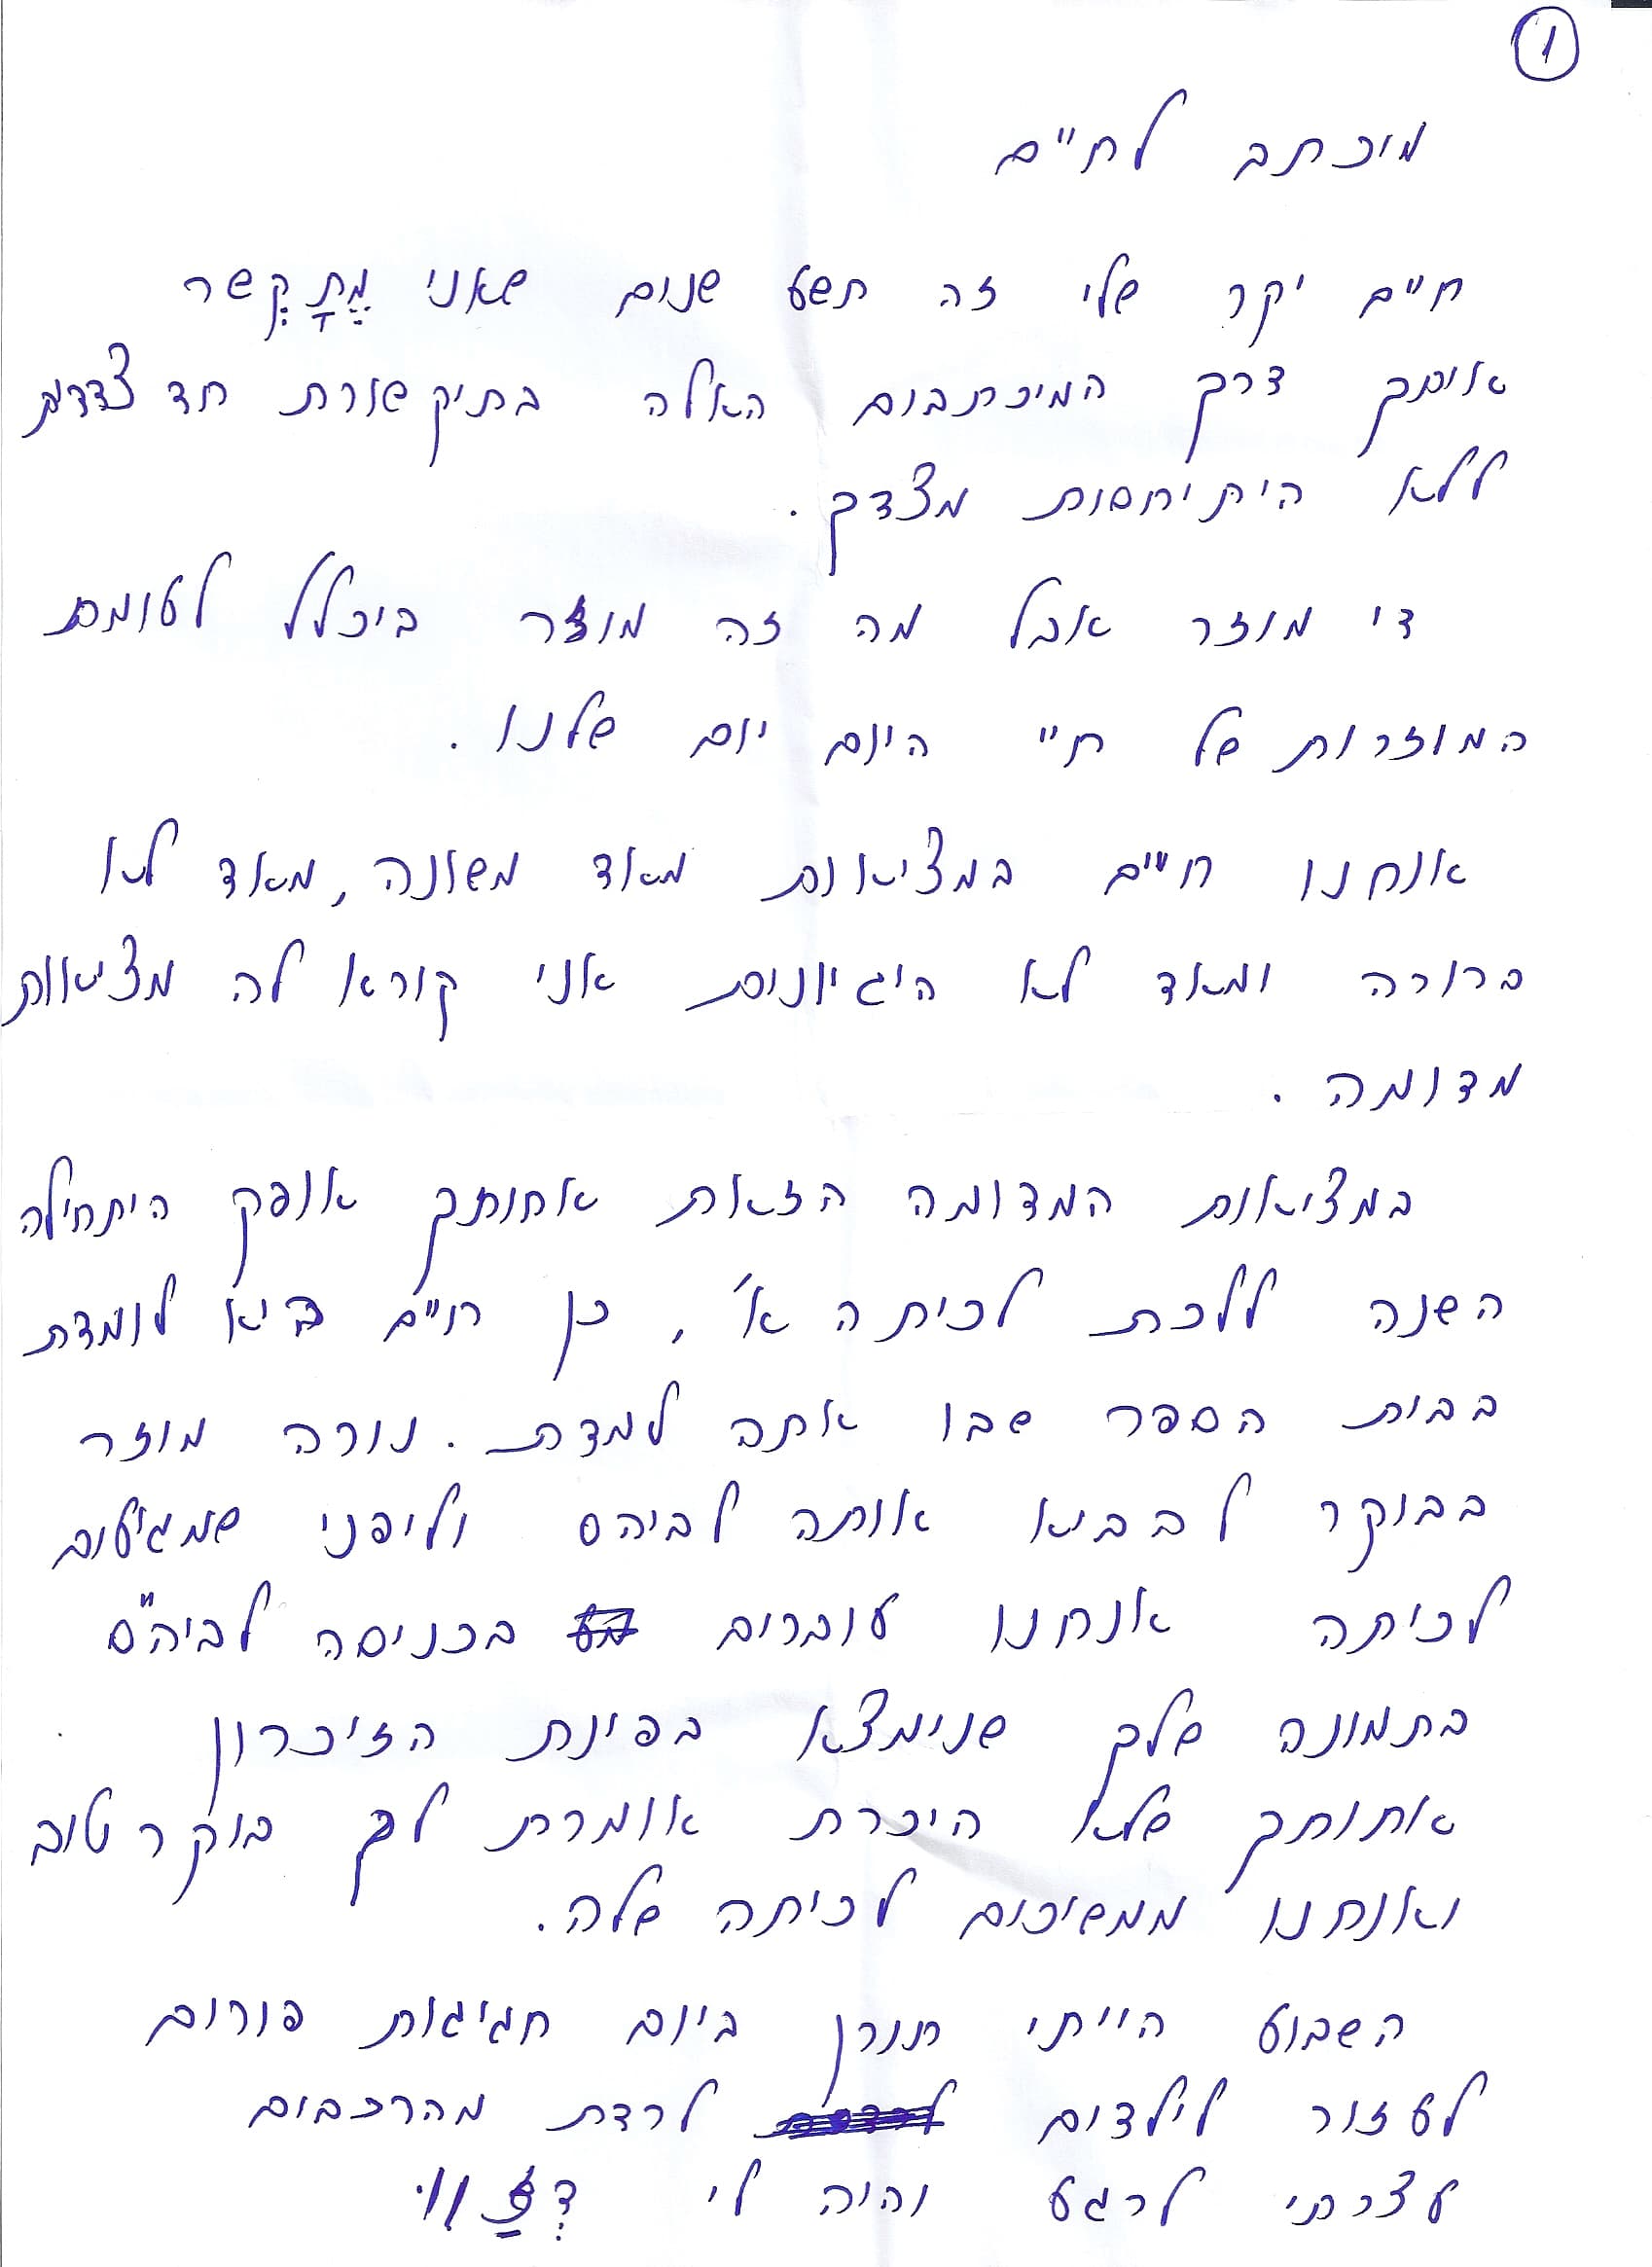 1
מיכתב לחיים
חיים יקר שלי זה תשע שנים שאני מְתַקְשר
אותך דרך המיכתבים האלה בתיקשורת חד צדדית
ללא היתיחסות מצדך.
די מוזר אבל מה זה מוזר ביכלל לעומת
המוזרות של חיי היום יום שלנו.
אנחנו חיים במציאות מאוד משונה, מאוד לא
ברורה ומאוד לא היגיונית אני קורא לה מציאות
מדומה.
במציאות המדומה הזאת אחותך אופק היתחילה
השנה ללכת לכיתה א', כן חיים היא לומדת
בבית הספר שבו אתה למדת. נורה מוזר
בבוקר להביא אותה לביהס וליפני שמגיעים
לכיתה אנחנו עוברים בכניסה לביה"ס
בתמונה שלך שנימצא בפינת הזיכרון
אחותך שלא היכרת אומרת לך בוקר טוב
ואנחנו ממשיכים לכיתה שלה.
השבוע הייתי תורן ביום חגיגות פורים
לעזור לילדים לרדת מהרכבים
עצרתי לרגע והיה לי דֶזַ'ווּ